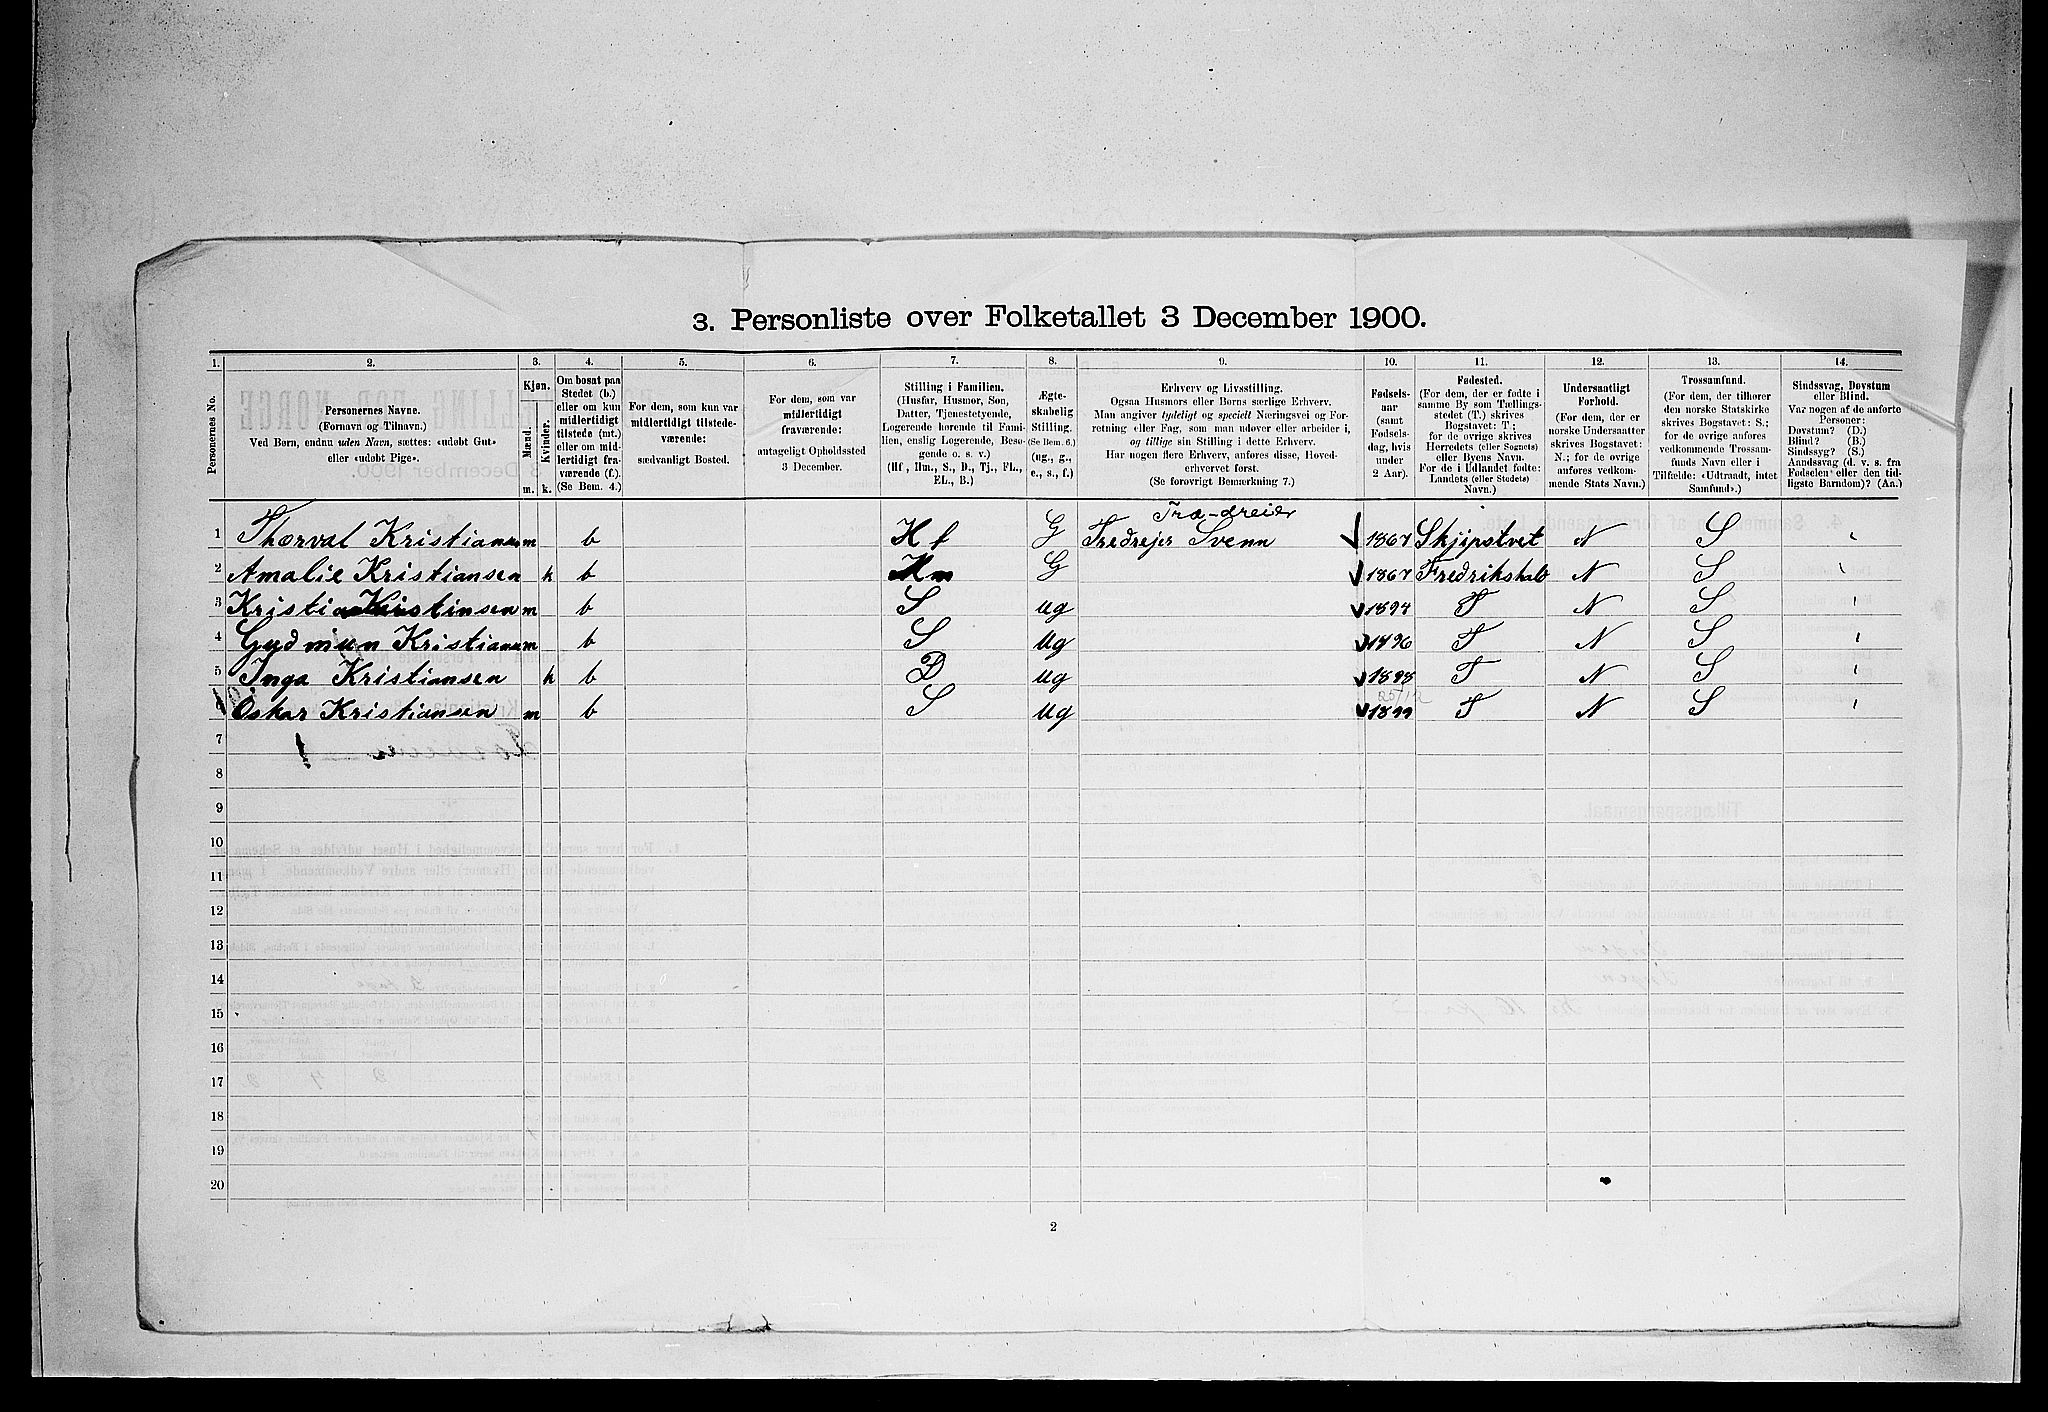 3. Personliste over Folketallet 3 December 1900.
1. 2. 3. 4. 5. 6. 7. 8. 9. 10. 11. 12. 13. 14.
Personernes No.
Personernes Navne.
(Fornavn og Tilnavn.)
Ved Børn, endnu uden Navn, sættes: «udøbt Gut»
eller «udøbt Pige».
Kjøn.
Mænd.
Kvinder.
m. k.
Om bosat paa
Stedet (b.)
eller om kun
midlertidigt
tilstede (mt.)
eller om mid-
lertidigt fra-
værende (f.)
(Se Bem. 4.)
For dem, som kun var
midlertidigt tilstede-
værende:
sædvanligt Bosted.
For dem, som var
midlertidigt
fraværende:
antageligt Opholdssted
3 December.
Stilling i Familien.
(Husfar, Husmor, Søn,
Datter, Tjenestetyende,
Logerende hørende til Fami-
lien, enslig Logerende, Besø-
gende o. s. v.)
(Hf, Hm., S., D., Tj., FL.,
EL., B.)
Ægte-
skabelig
Stilling.
(Se Bem. 6.)
(ug., g.,
e., s., f.)
Erhverv og Livsstilling.
Ogsaa Husmors eller Børns særlige Erhverv.
Man angiver tydeligt og specielt Næringsvei og For-
retning eller Fag, som man udøver eller arbeider i,
og tillige sin Stilling i dette Erhverv.
Har nogen flere Erhverv, anføres disse, Hoved-
erhvervet først.
(Se forøvrigt Bemærkning 7.)
Fødsels-
aar
(samt
Fødsels-
dag, hvis
under
2 Aar).
Fødested.
(For dem, der er fødte i
samme By som Tællings-
stedet (T.) skrives
Bogstavet: T;
for de øvrige skrives
Herredets (eller Sognets)
eller Byens Navn.
For de i Udlandet fødte:
Landets (eller Stedets)
Navn.)
Undersaatligt
Forhold.
(For dem, der er
norske Undersaatter
skrives Bogstavet:
N.; for de øvrige
anføres vedkom-
mende Stats Navn.)
Trossamfund.
(For dem, der tilhører
den norske Statskirke
skrives Bogstavet: S.;
for de øvrige anføres
vedkommende Trossam-
funds Navn eller i
Tilfælde: «Udtraadt, intet
Samfund».)
Sindssvag, Døvstum
eller Blind.
Var nogen af de anførte
Personer:
Døvstum? (D.)
Blind? (B.)
Sindssyg? (S.)
Aandssvag (d. v. s. fra
Fødselen eller den tid-
ligste Barndom)? (Aa.)
Træ-dreier
1 Thorval Kristiansen m b Hf G Tredrejer Svenn 1867 Skjipstvet N S
2 Amalie Kristiansen k b Hm G 1867 Fredrikshald N S
3 Kristian Kristinsen m b S ug 1894 T N S
4 Gudmun Kristiansen m b S ug 1896 T N S
5 Inga Kristiansen k b D ug 1898 T N S
25/12
6 Oskar Kristiansen m b S ug 1899 T N S
7
8
9
10
11
12
13
14
15
16
17
18
19
20
2